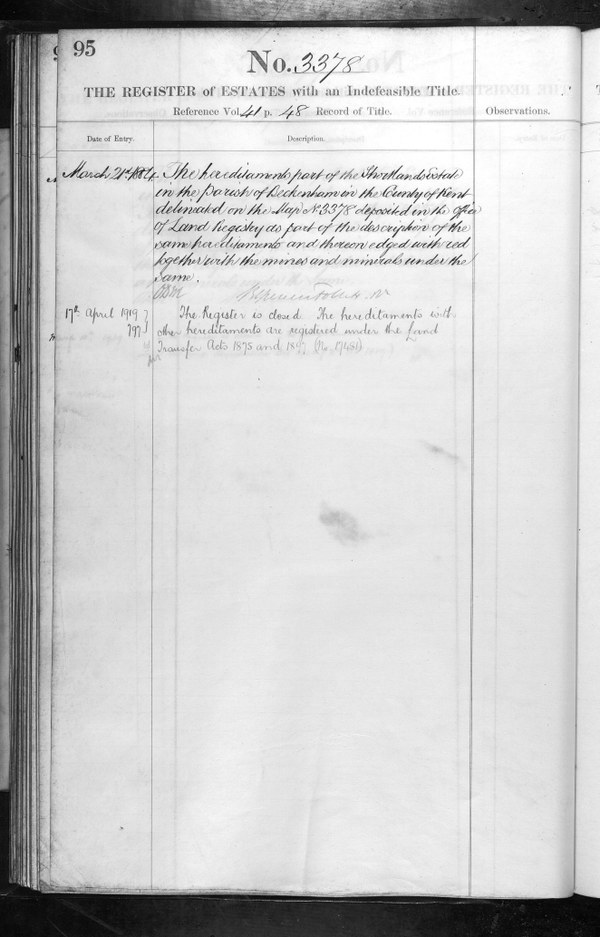 95
No. 3378
THE REGISTER of ESTATES with an Indefeasible Title.
Reference Vol. 41 p. 48 Record of Title.
Observations.
Date of Entry.
Description.
March 21st The hereditaments part of the Shortlands Estate
in the Parish of Beckenham in the County of Kent
delineated on the Map No 3378 deposited in the Office
of Land Registry as part of the description of the
same hereditaments and thereon edged with red
together with the mines and minerals under the
same.
17th April 1919 The Register is closed. The hereditaments with
797 other hereditaments are registered under the Land
Transfer Acts 1875 and 1897